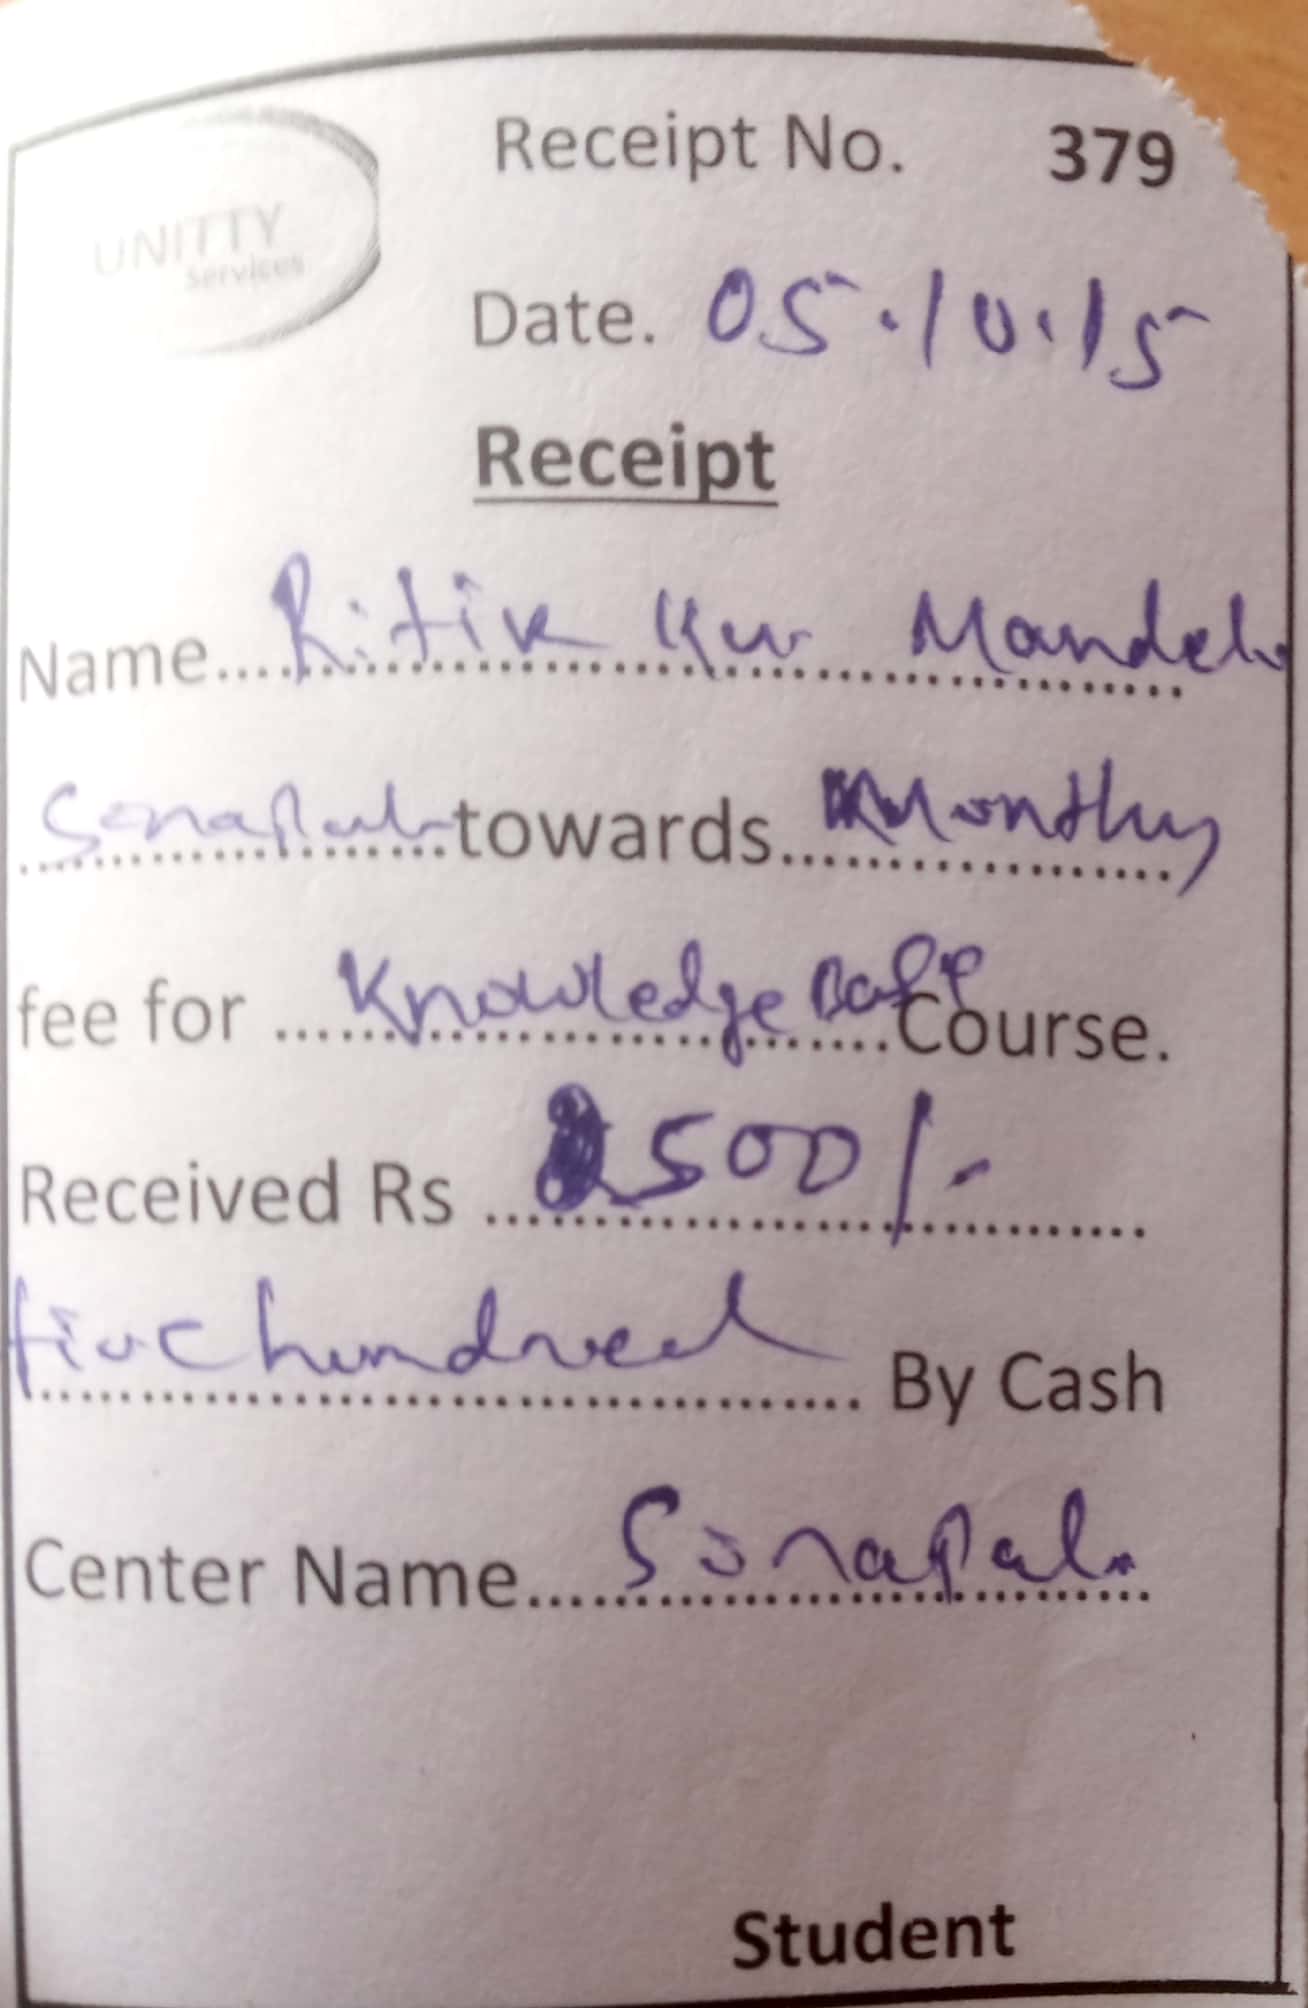 UNITTY
Services
Receipt No. 379
Date. 05.10.15
Receipt
Name....Ritik Kr Mandal
Sonapal towards Monthly
fee for Knowledge Course.
Received Rs 500/-
five hundred By Cash
Center Name Sonapal
Student